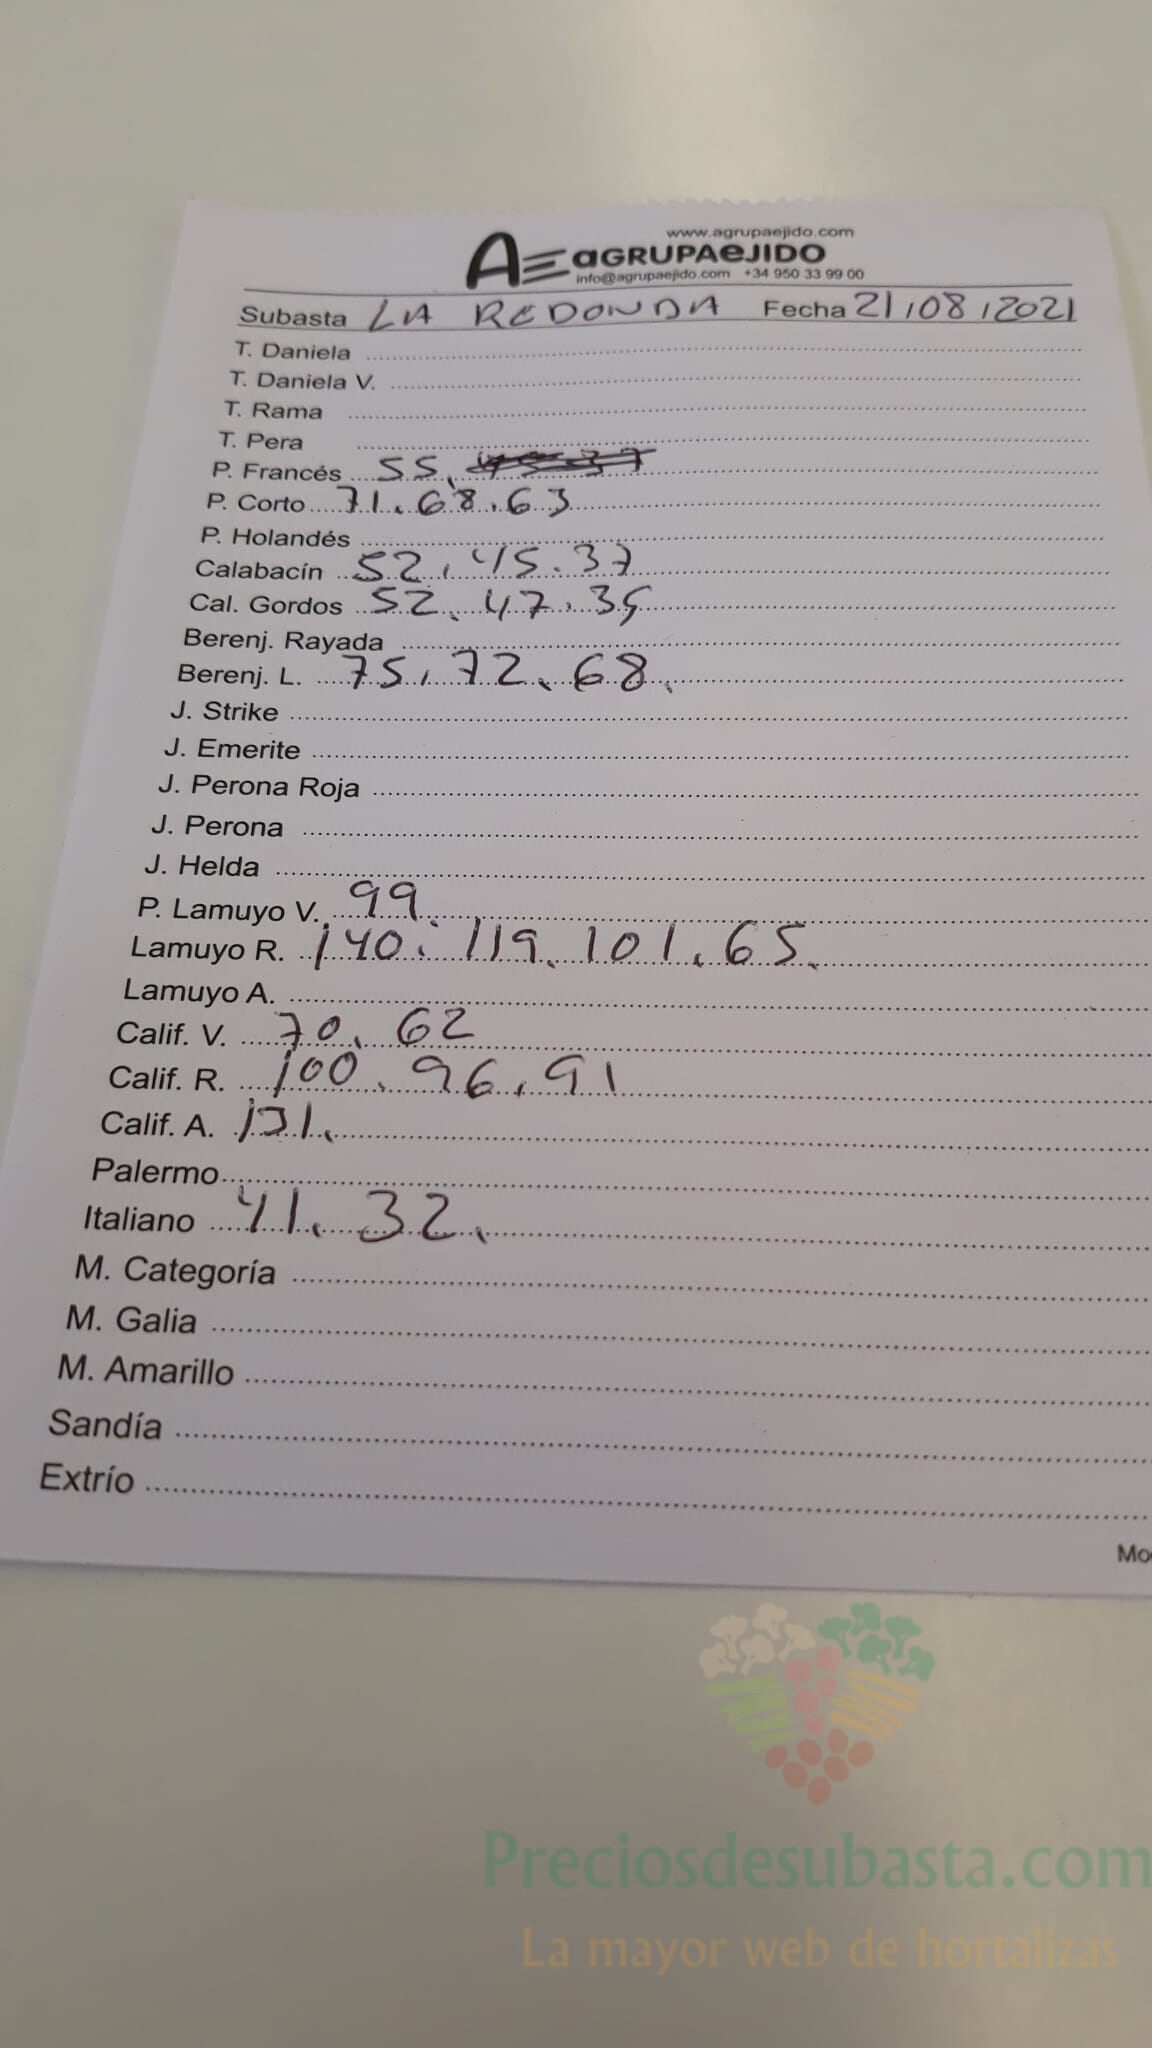 www.agrupaejido.com
AE aGRUPAeJIDO
info@agrupaejido.com +34 950 33 99 00
Subasta LA REDONDA Fecha 21/08/2021
T. Daniela
T. Daniela V.
T. Rama
T. Pera
P. Francés 55.
P. Corto 71.68.63
P. Holandés
Calabacín 52.45.37
Cal. Gordos 52.47.35
Berenj. Rayada
Berenj. L. 75.72.68.
J. Strike
J. Emerite
J. Perona Roja
J. Perona
J. Helda
P. Lamuyo V. 99.
Lamuyo R. 140.119.101.65.
Lamuyo A.
Calif. V. 70.62
Calif. R. 100.96.91
Calif. A.
Palermo
Italiano 41.32.
M. Categoría
M. Galia
M. Amarillo
Sandía
Extrío
Preciosdesubasta.com
La mayor web de hortalizas